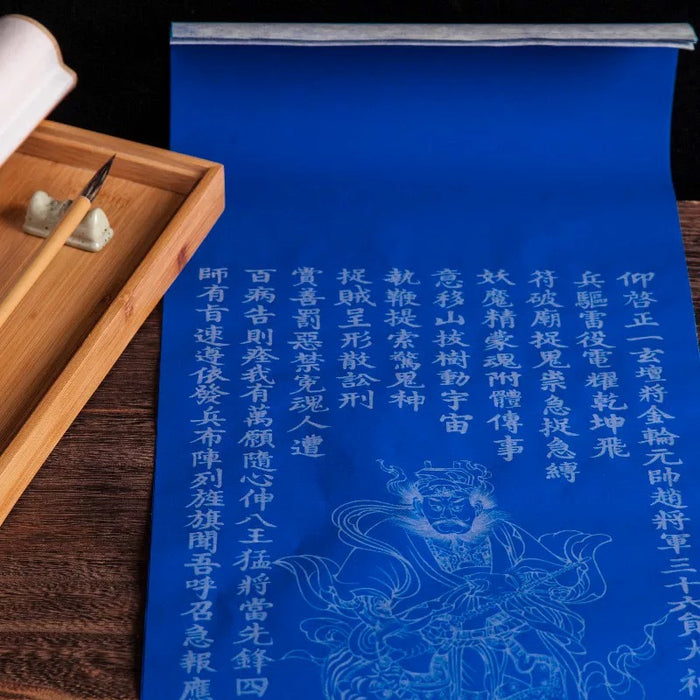 仰啓正一玄壇將金輪元帥趙將軍三十六員
兵驅雷役電耀乾坤飛
符破廟捉鬼祟急捉急縛
妖魔精蒙魂附體傳事
意移山拔樹動宇宙
執鞭提索驚鬼神
捉賊呈形散訟刑
賞善罰惡禁寃魂人遭
百病告則痊我有萬願隨心伸八王猛將當先鋒四
師有旨速遵依發兵布陣列旌旗聞吾呼召急報應